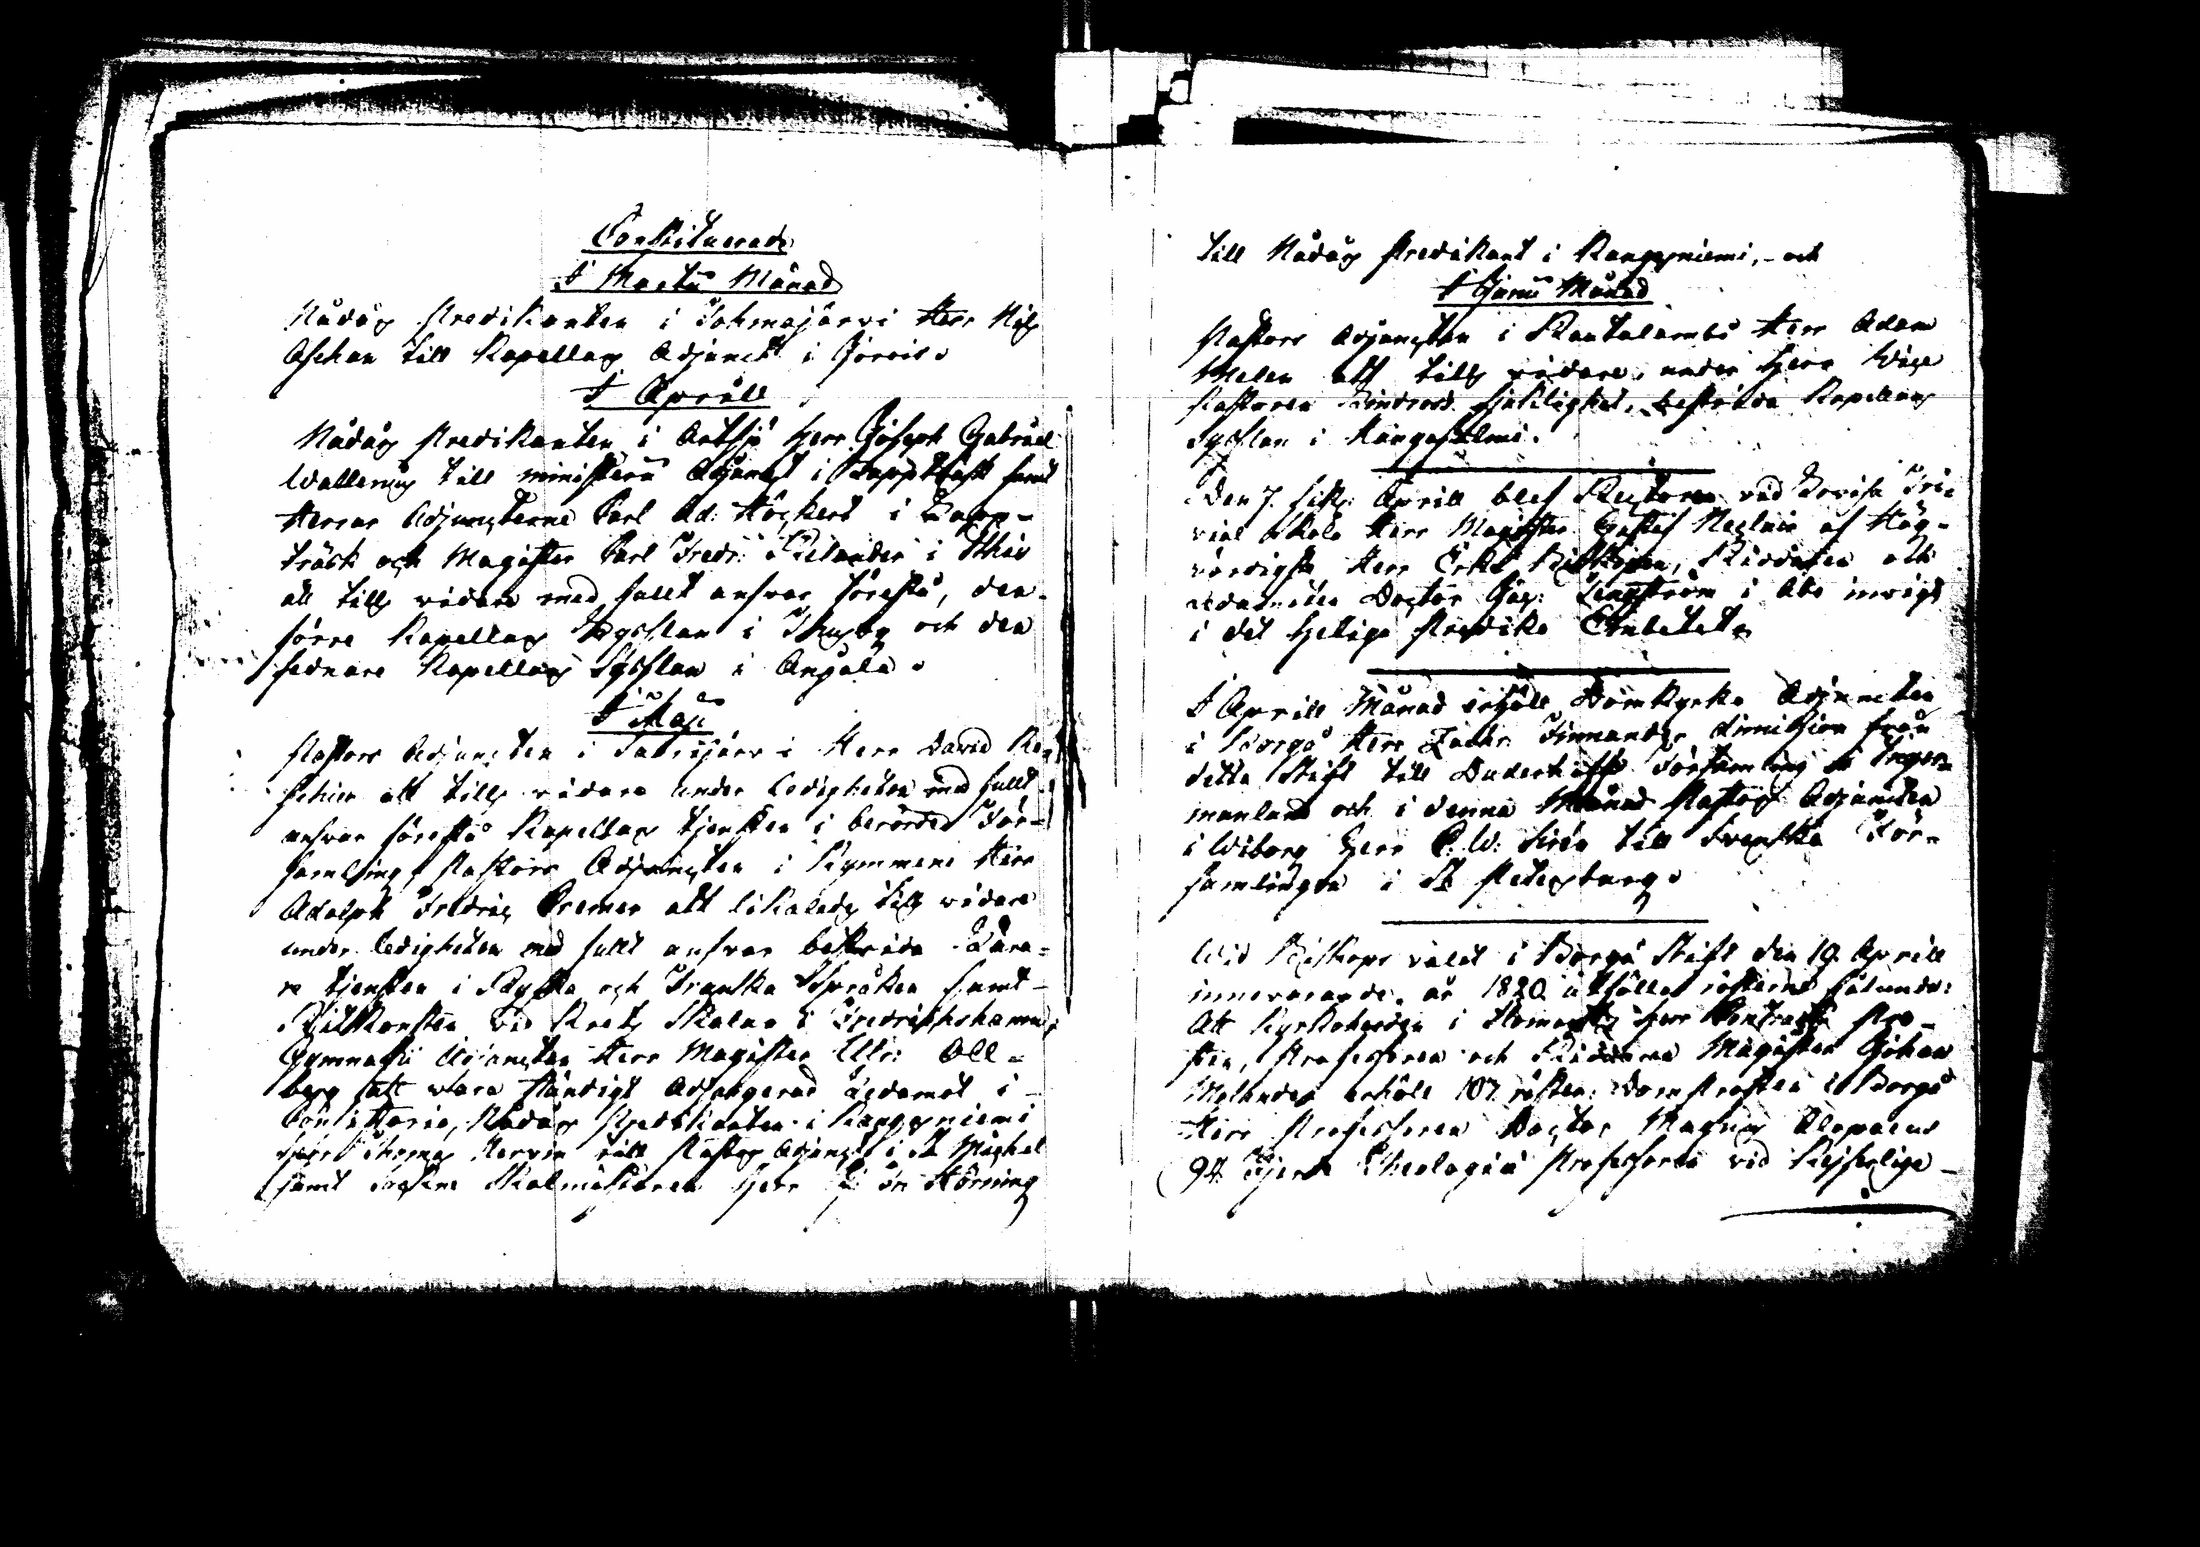 Constituerade
I Martii Månad
Nådårs Predikanten i Tohmajärvi Herr Nils
Aschan till Kapellans Adjunct i Jorois.
I Aprill
Nådårs Predikanten i Artsjö Herr Joseph Gabriel
Wallenius till ministerii Adjunct i Lappträsk samt
Herrar Adjuncterne Carl Ad: Höckert i Lapp-
träsk och Magister Carl Fredr: Relander i Sthis
att tills vidare med fullt ansvar förestå, den
förre Kapellans Sysslan i och den
sednare Kapellans Sysslan i Anjala.
I Maji
Pastors Adjuncten i Taipalsjärvi Herr David
att tills vidare under ledigheten med fullt
ansvar förestå Kapellans tjensten i berörde För-
samling, Pastors Adjuncten i Kymmene Herr
Adolph Fredric Bremer att likaledes tills vidare
under ledigheten med fullt ansvar bestrida Lära-
re tjensten i Ryska och Franska Språken samt
Ritkonsten vid Krets Skolan i Fredrikshamn,
Gymnasii Adjuncten Herr Magister Ulr: All-
berg att vara ständigt Adjungerad Ledamot i
Consistorio, Nådårs Predikanten i Kangasniemi
Herr Thomas till Pastors Adjunct i St Michel
samt Sockne Skolmästaren Herr Hörning
till Nådårs Predikant i Kangasniemi, - och
I Junii Månad
Pastors Adjuncten i Rautalambi Herr Adam
Melen att tills vidare, under Herr Vice
Pastoren sjuklighet, bestrida Kapellans
Sysslan i Hangasalmi.
Den 7. sistl: Aprill blef Rectoren vid Lovisa Tri-
vial Skola Herr Magister Gustaf af Hög-
vördigste Herr Erke Biskopen, Riddaren och
Ledamoten Doctor Jac: Tengström i Åbo invigd
i det Heliga Predike Embetet.
I Aprill Månad erhöll Domkyrko Adjuncten
i Borgå Herr Zachr: Finnander dimission från
detta Stift till Duderhoffs Församling i Inger-
manland och i denna Månad Pastors Adjuncten
i Wiborg Herr C. W: Sirén till Svenska För-
samlingen i St Petersburg.
Wid Biskops valet i Borgå Stift den 19. Aprill
innevarande. år 1820 utföllo rösterne sålunda:
Att Kyrkoherden i Ilomants Herr Contracts Pro-
sten, Professoren och Riddaren Magister Johan
Molander erhöll 107 röster: Domprosten i Borgå
Herr Professoren Doctor Magnus Alopaeus
94. Fjerde Theologiæ Professoren vid Kejserliga